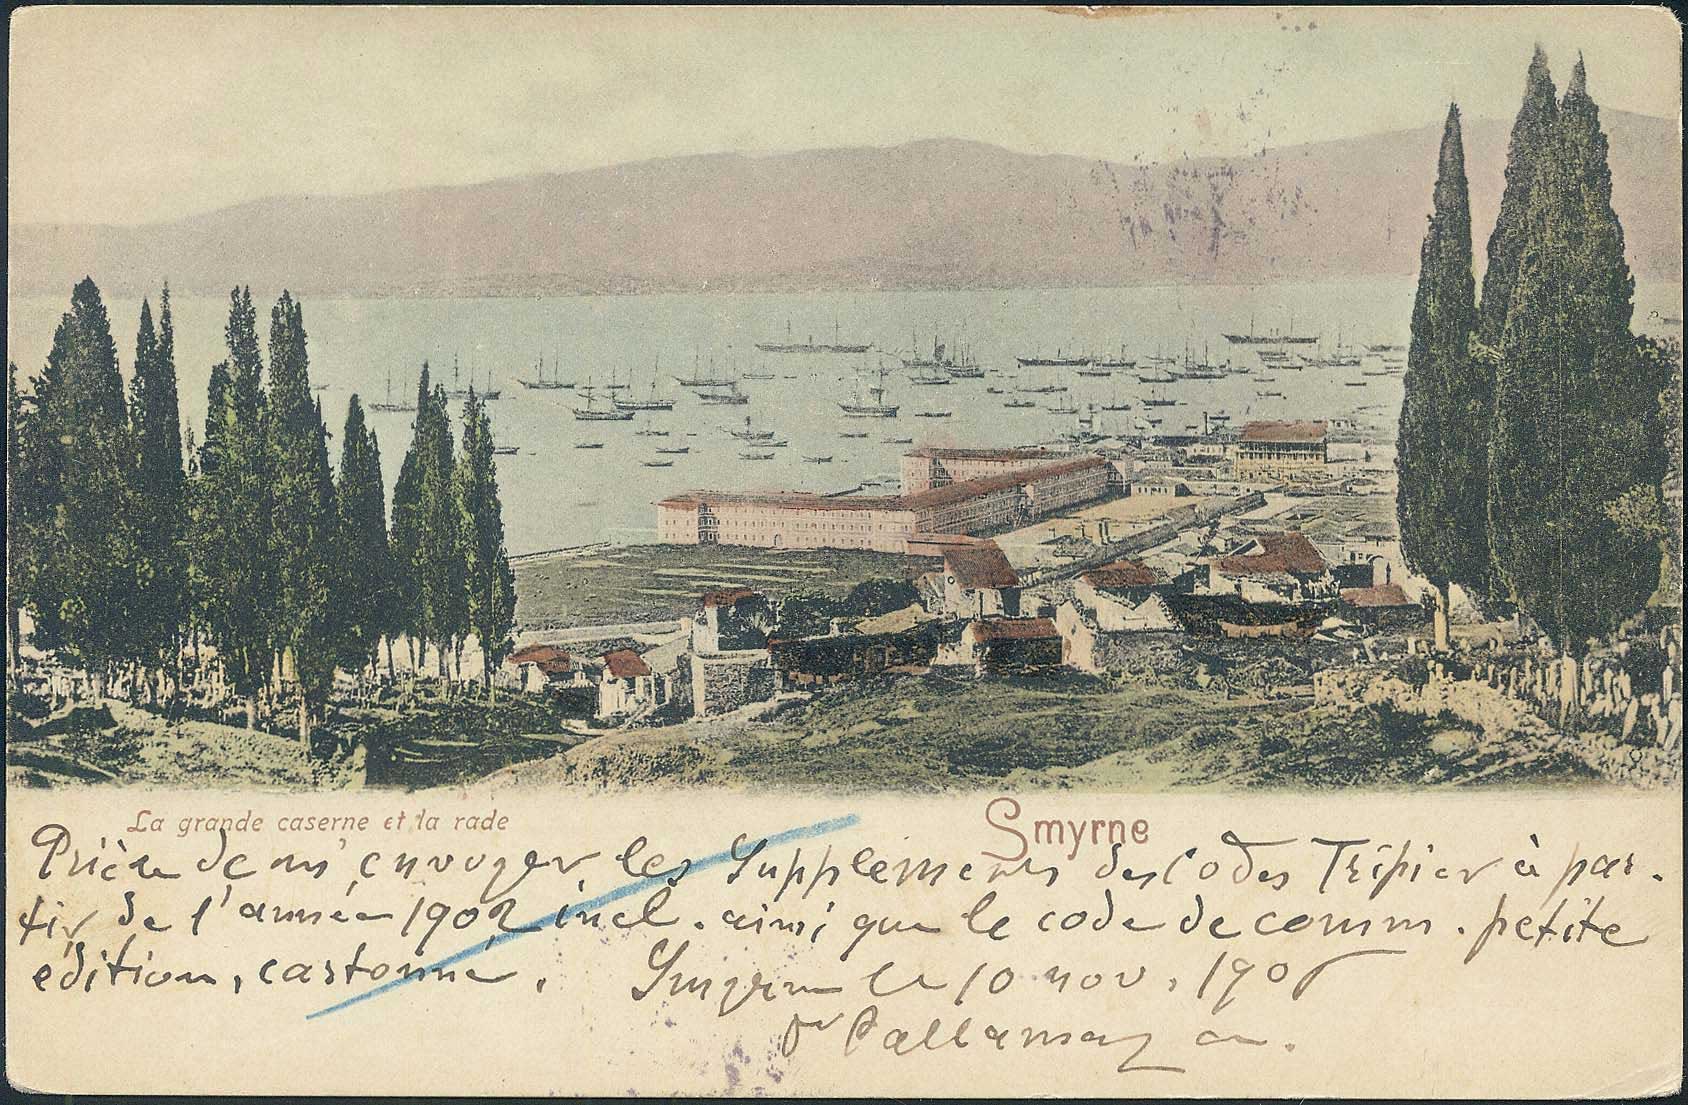 La grande caserne et la rade
Smyrne
Prière de m'envoyer les Supplements des Codes Tripier à par-
tir de l'année 1902 incl. ainsi que le code de comm. petite
édition, cartonné. Smyrne le 10 nov. 190
Dr